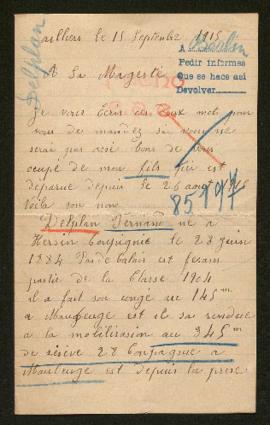 Delplan
Berlin
Haillicourt le 15 Septembre 1915
A
Pedir informes
Que se hace así
Devolver
A Sa Magesté
Je vous Ecris ces deux mot pour
vous de mandez si vous ne
serai pas asé bons de vous
ocupé de mon fils qui est
disparue depuis le 26 aout 1914
Voila son nom
85197
Delplan Fernand né a
Hersin Coupagnie le 28 juin
1884 Pas de Calais est fesan
partie de la Classe 1904
il a fait son congé au 145m
a Maugeuge est il sa rendue
a la mobilisasion au 345m
de réséve 28 Compagnie a
Mauberge est depuis la prise